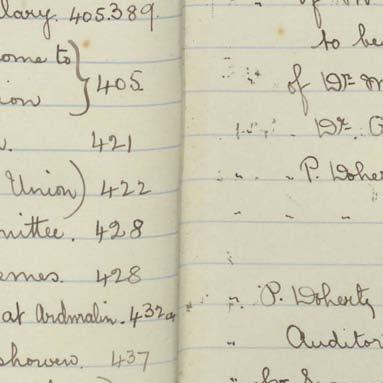 lary. 405.389.
ome to
ion } 405
421
Union) 422
mittee. 428
emes. 428
at Ardmalin. 432a
showen. 437
of
to be
of Dr. M
" " Dr.
" " P. Doher
" "
" P. Doherty
" Auditor
"